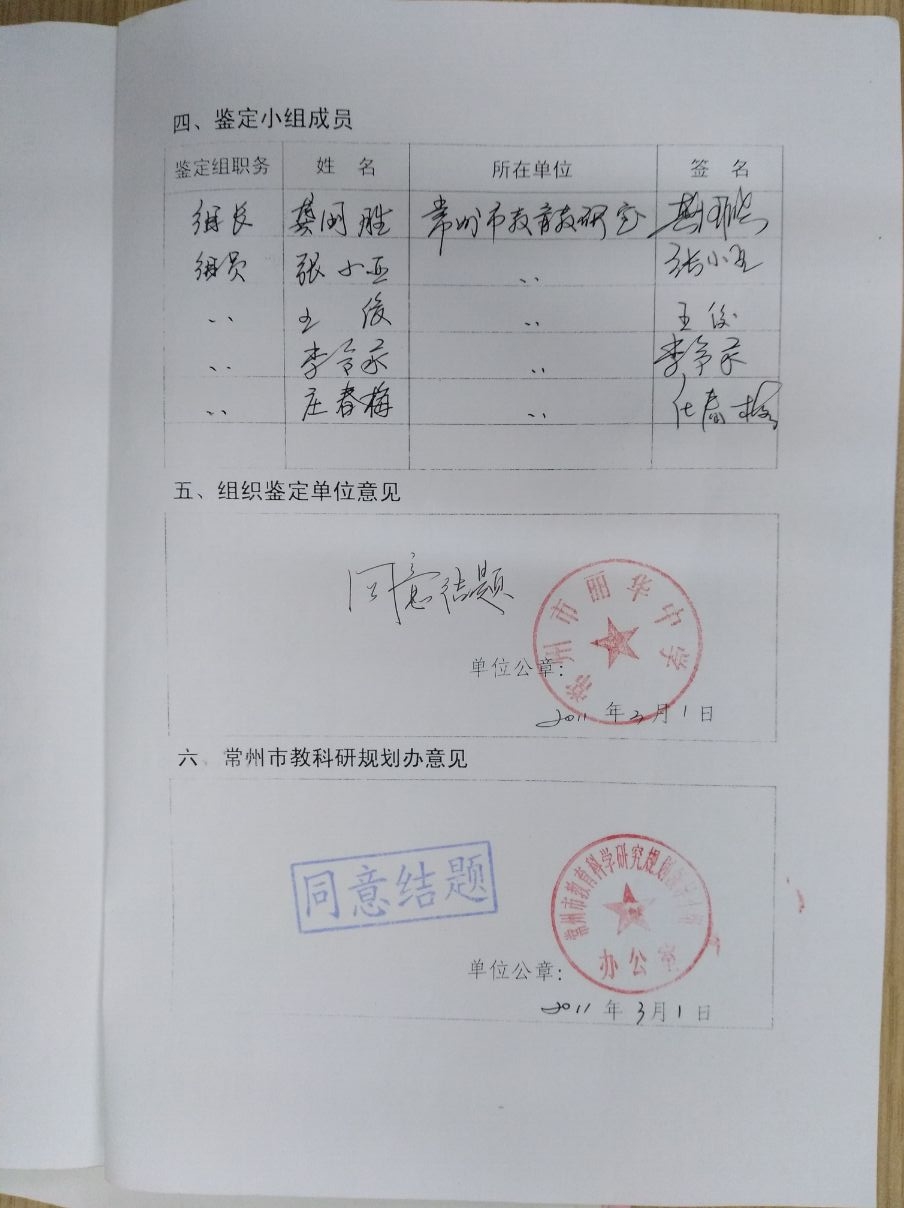 四、鉴定小组成员
鉴定组职务 姓 名 所在单位 签 名
组长 龚国胜 常州市教育教研室 龚国胜
组员 张小亚 〃 张小亚
〃 王 俊 〃 王 俊
〃 李 〃 李
〃 庄春梅 〃 庄春梅
五、组织鉴定单位意见
同意结题
常州市丽华中学
单位公章:
2011 年 3 月 1 日
六、常州市教科研规划办意见
同意结题
常州市教育科学研究规划领导小组
办公室
单位公章:
2011 年 3 月 1 日